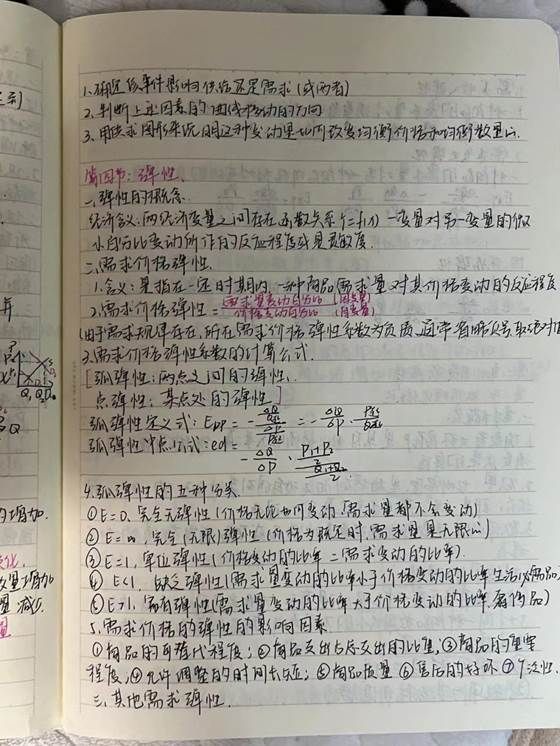 1.确定该事件影响供给还是需求(或两者)
2.判断上述因素的曲线移动的方向
3.用供求图形来说明这种变动是如何改变均衡价格和均衡数量的.
第四节:弹性.
一、弹性的概念
经济含义:两经济变量之间存在函数关系 一变量对另一变量的微
小百分比变动所作的反应程度或灵敏度.
二.需求价格弹性.
1.含义:是指在一定时期内,一种商品需求量对其价格变动的反应程度
2.需求价格弹性= 需求量变动百分比(因变量)
价格变动百分比(自变量)
(由于需求规律存在,所在需求价格弹性系数为负值,通常省略负号取绝对值
3.需求价格弹性系数的计算公式.
[弧弹性:两点之间的弹性.
点弹性:某点处的弹性]
弧弹性定义式:
弧弹性中点公式:ed=
4.弧弹性的五种分类
①E=0,完全无弹性(价格无论如何变动,需求量都不会变动)
②E=∞,完全(无限)弹性(价格为既定时,需求量是无限的)
③E=1,单位弹性(价格变动的比率=需求变动的比率).
④E<1,缺乏弹性(需求量变动的比率小于价格变动的比率,生活必需品)
⑤E>1,富有弹性(需求量变动的比率大于价格变动的比率,奢侈品)
5.需求价格的弹性的影响因素
①商品的可替代程度;②商品支出占总支出的比重,③商品的重要
程度,④允许调整的时间长短;⑤商品质量⑥售后的好坏⑦
三.其他需求弹性.